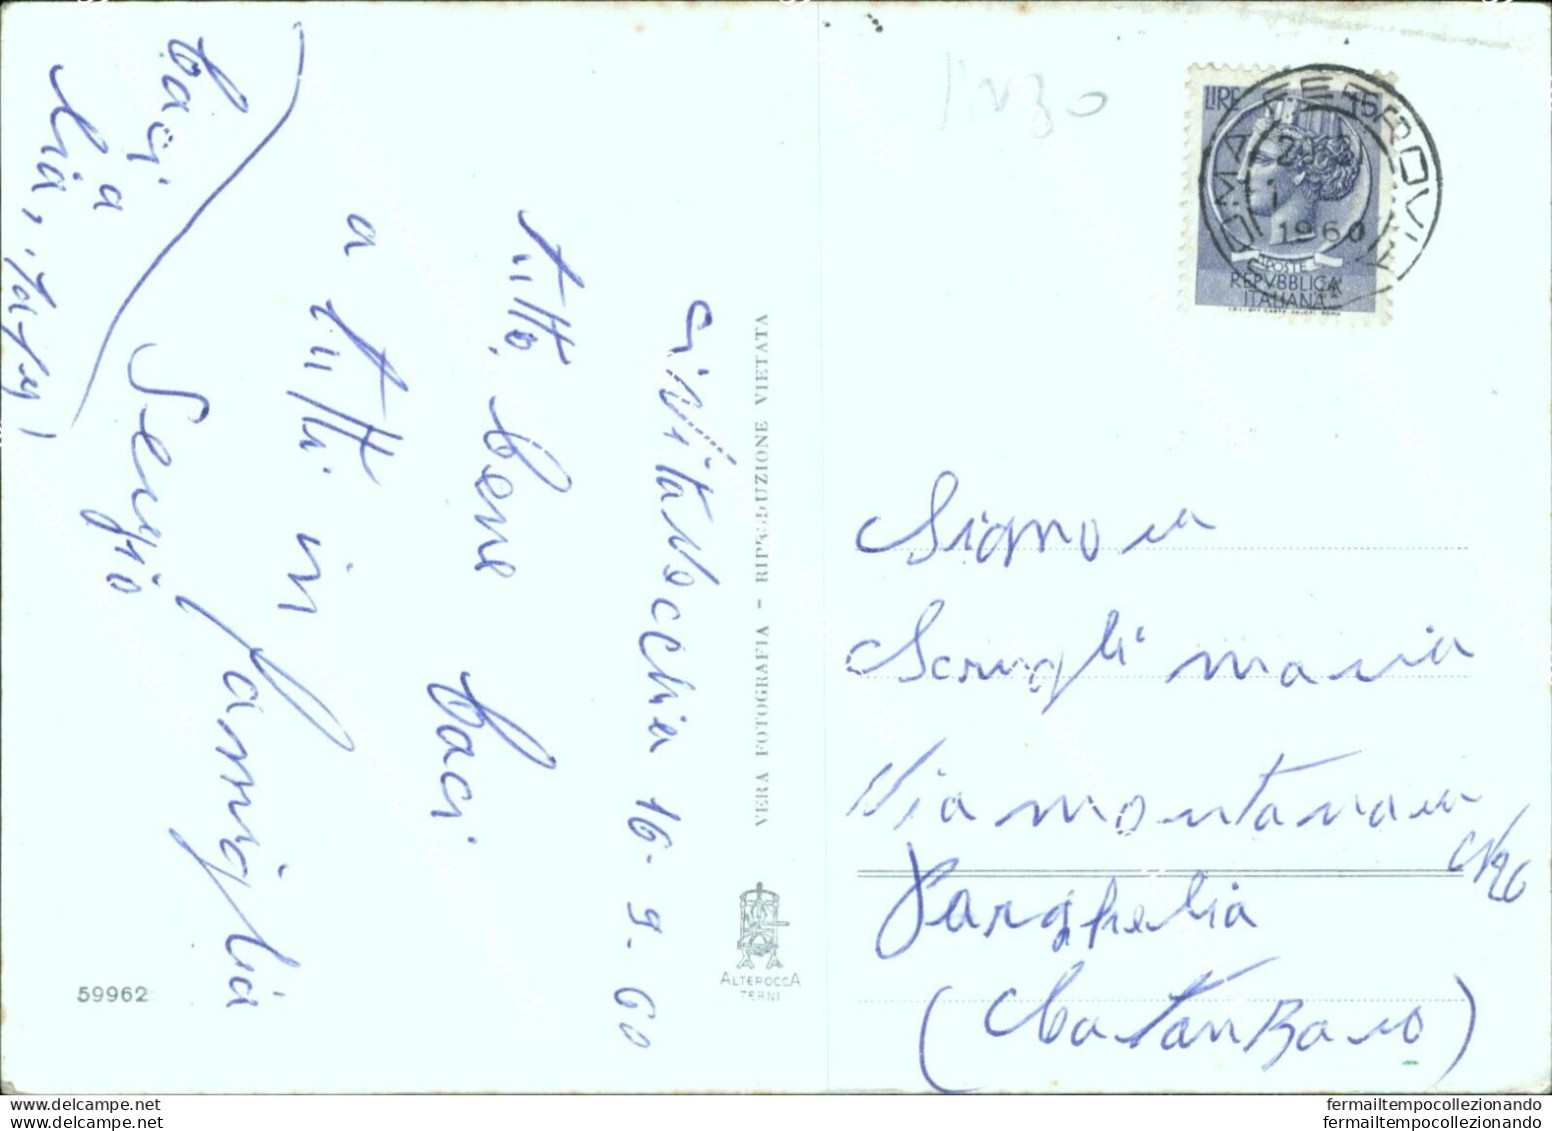 Civitavecchia 16-9-60
tutto bene baci
a tutti in famiglia
Sergio
baci a
Lia,
VERA FOTOGRAFIA - RIPRODUZIONE VIETATA
ALTEROCCA
TERNI
59962
LIRE 15
POSTE
REPVBBLICA
ITALIANA
ROMA FERROVIA
1960
Signora
Scrugli Maria
Via montanara
N 26
Parghelia
(Catanzaro)
fermailtempocollezionando
fermailtempocollezionando
fermailtempocollezionando
fermailtempocollezionando